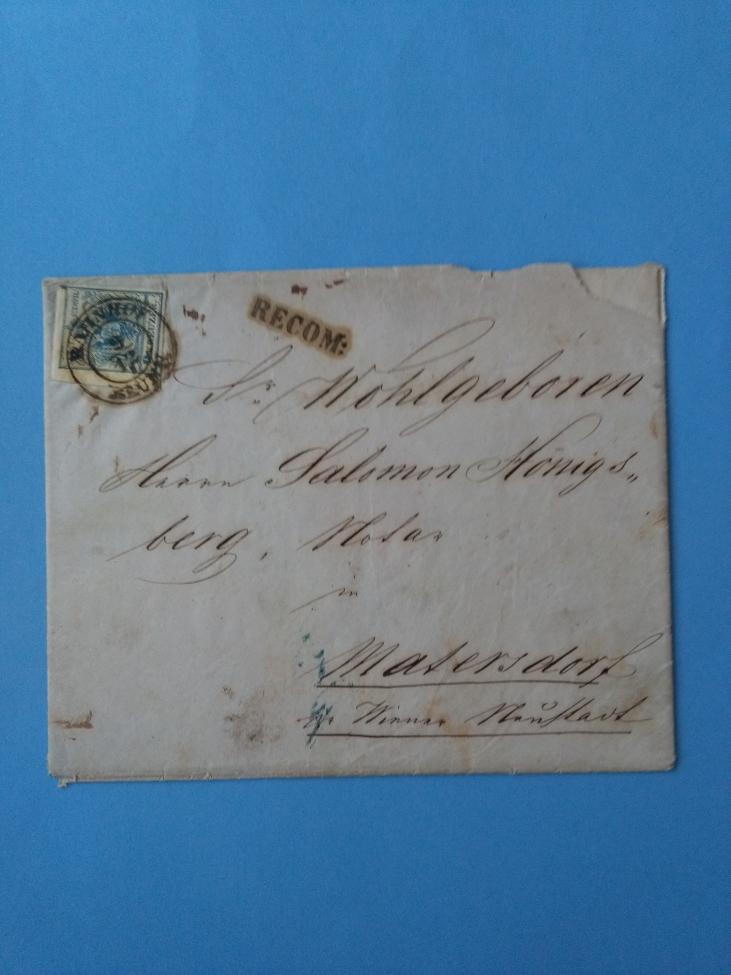 BAHNHOF
RECOM:
Sr. Wohlgeboren
Herrn Salomon Königs„
berg, Notar
in
Matersdorf
Wiener Neustadt